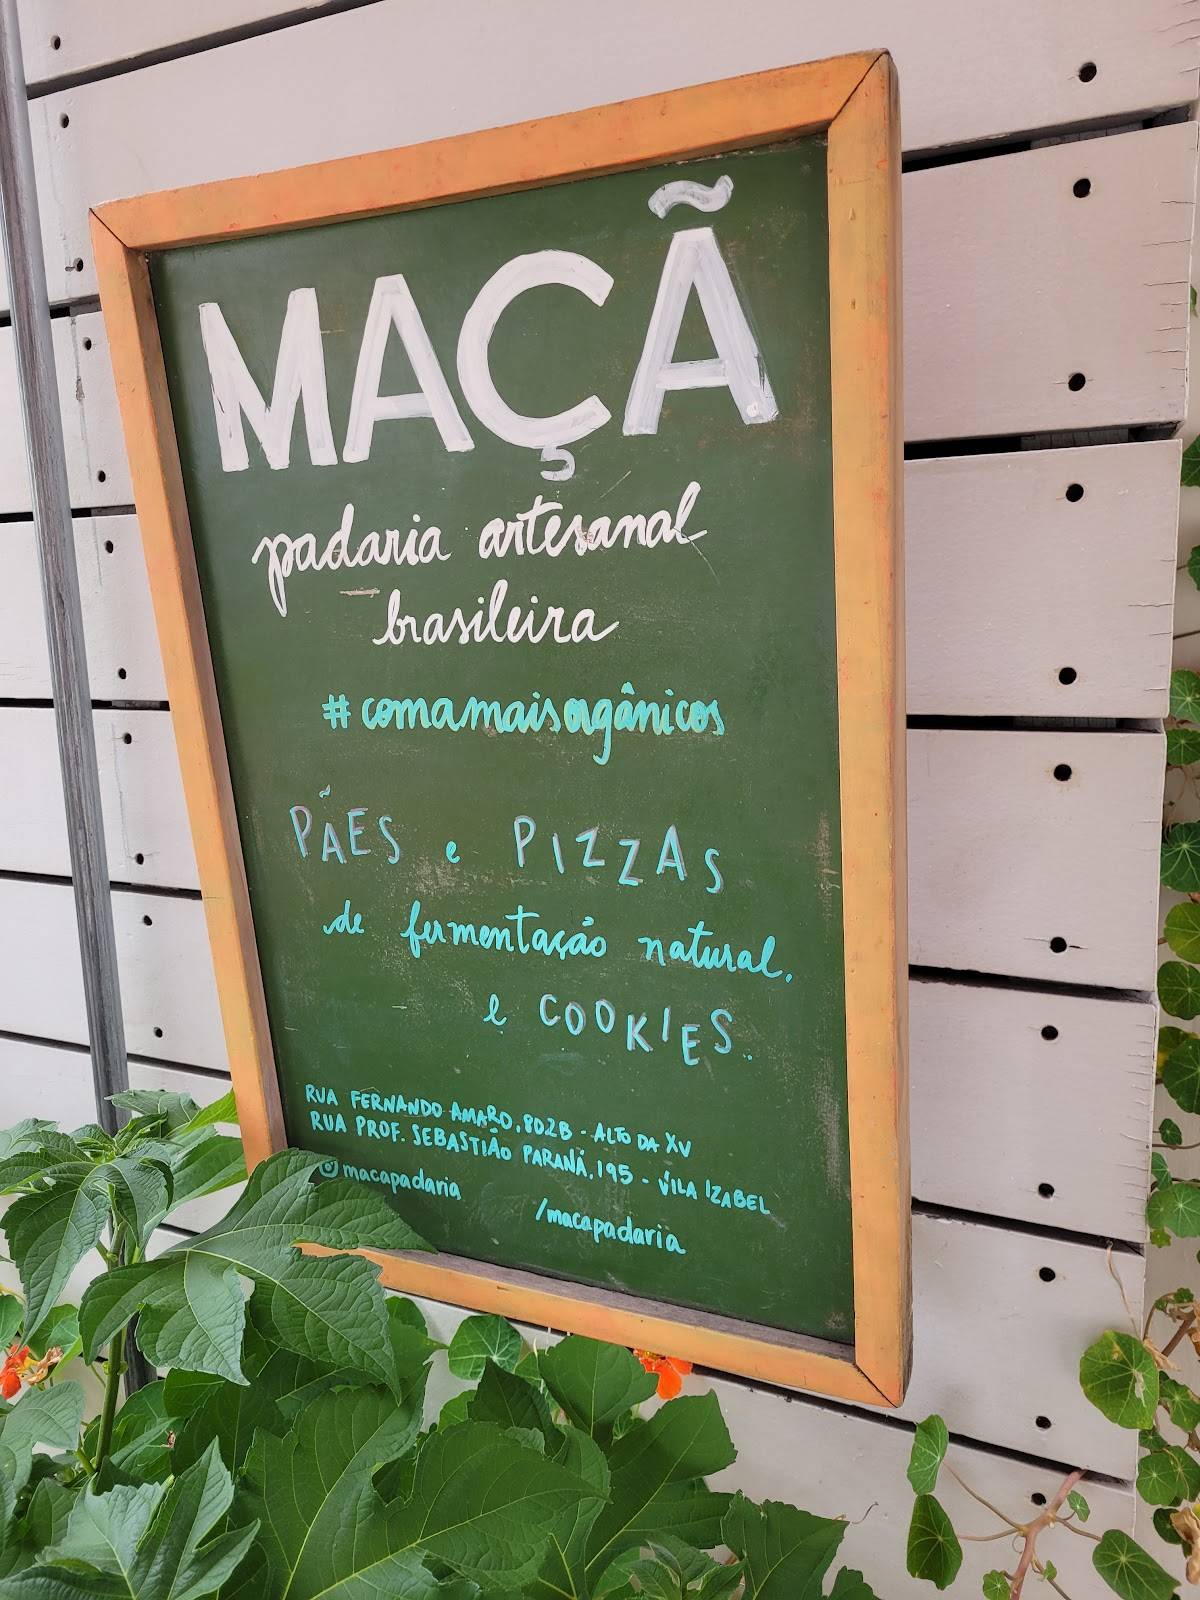 MAÇÃ
padaria artesanal
brasileira
#comamaisorgânicos
PÃES e PIZZAS
de fermentação natural.
e COOKIES.
RUA FERNANDO AMARO, 802B - ALTO DA XV
RUA PROF. SEBASTIÃO PARANÁ, 195 - VILA IZABEL
macapadaria
/macapadaria